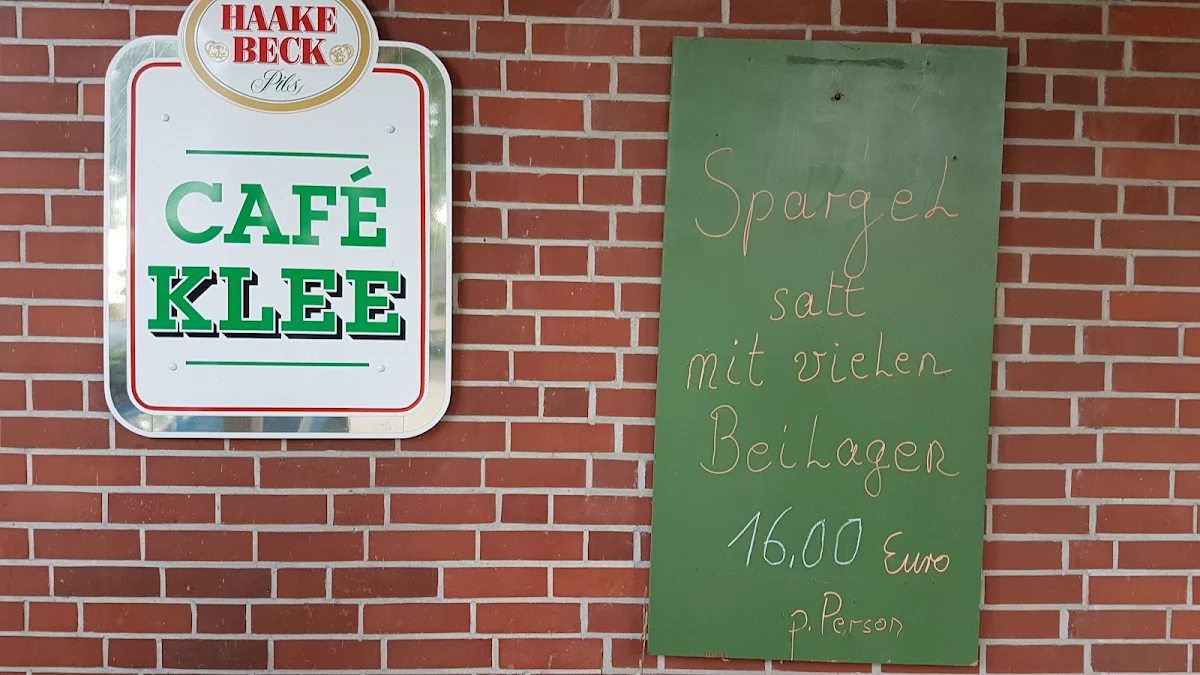 HAAKE
BECK
Pils
CAFÉ
KLEE
Spargel
satt
mit vielen
Beilagen
16,00 Euro
p. Person